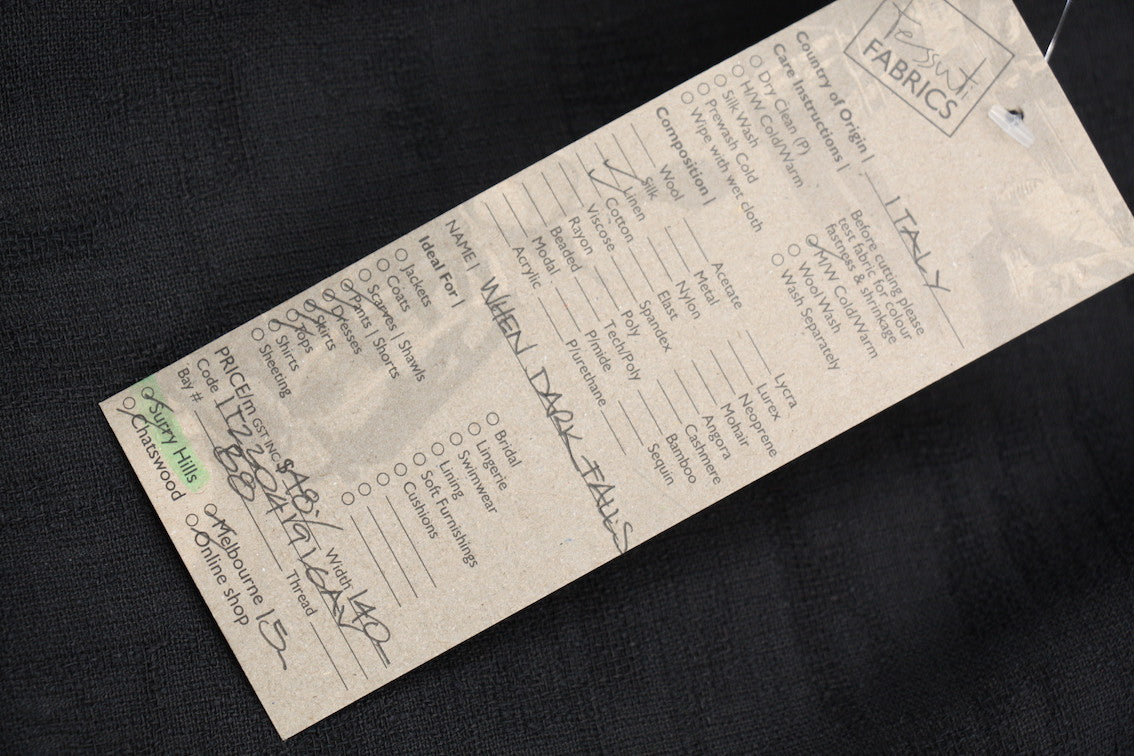 tessuti
FABRICS
Country of Origin | ITALY
Care Instructions |
Dry Clean (P)
H/W Cold/Warm
Silk Wash
Prewash Cold
Wipe with wet cloth
Before cutting please
test fabric for colour
fastness & shrinkage
M/W Cold/Warm
Wool Wash
Wash Separately
Composition |
Wool
Silk
Linen
Cotton
Viscose
Rayon
Beaded
Modal
Acrylic
Acetate
Metal
Nylon
Elast
Spandex
Poly
Tech/Poly
P/mide
P/urethane
Lycra
Lurex
Neoprene
Mohair
Angora
Cashmere
Bamboo
Sequin
NAME | WHEN DARK FALLS
Ideal For |
Jackets
Coats
Scarves | Shawls
Pants | Shorts
Dresses
Skirts
Tops
Shirts
Sheeting
Bridal
Lingerie
Swimwear
Lining
Soft Furnishings
Cushions
PRICE/m GST INC $48.- Width 140
Code
Bay # 88 Thread
Surry Hills
Chatswood
Melbourne 15
Online shop